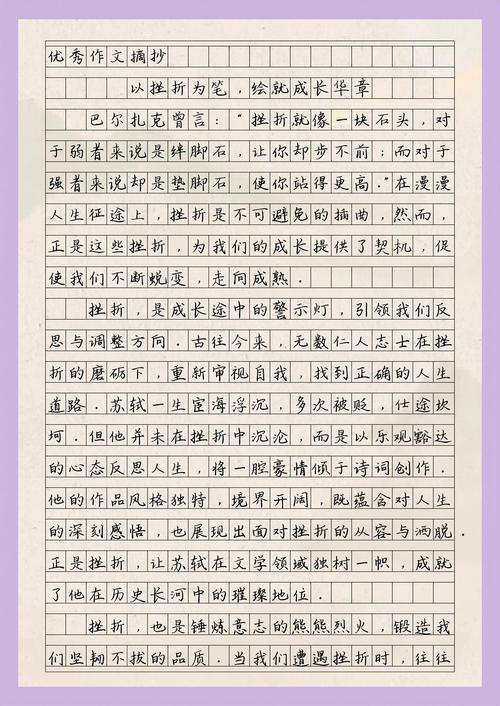 优秀作文摘抄
以挫折为笔，绘就成长华章
巴尔扎克曾言："挫折就像一块石头，对
于弱者来说是绊脚石，让你却步不前；而对于
强者来说却是垫脚石，使你站得更高."在漫漫
人生征途上，挫折是不可避免的插曲，然而，
正是这些挫折，为我们的成长提供了契机，促
使我们不断蜕变，走向成熟.
挫折，是成长途中的警示灯，引领我们反
思与调整方向.古往今来，无数仁人志士在挫
折的磨砺下，重新审视自我，找到正确的人生
道路.苏轼一生宦海浮沉，多次被贬，仕途坎
坷.但他并未在挫折中沉沦，而是以乐观豁达
的心态反思人生，将一腔豪情倾于诗词创作.
他的作品风格独特，境界开阔，既蕴含对人生
的深刻感悟，也展现出面对挫折的从容与洒脱.
正是挫折，让苏轼在文学领域独树一帜，成就
了他在历史长河中的璀璨地位.
挫折，也是锤炼意志的熊熊烈火，锻造我
们坚韧不拔的品质.当我们遭遇挫折时，往往